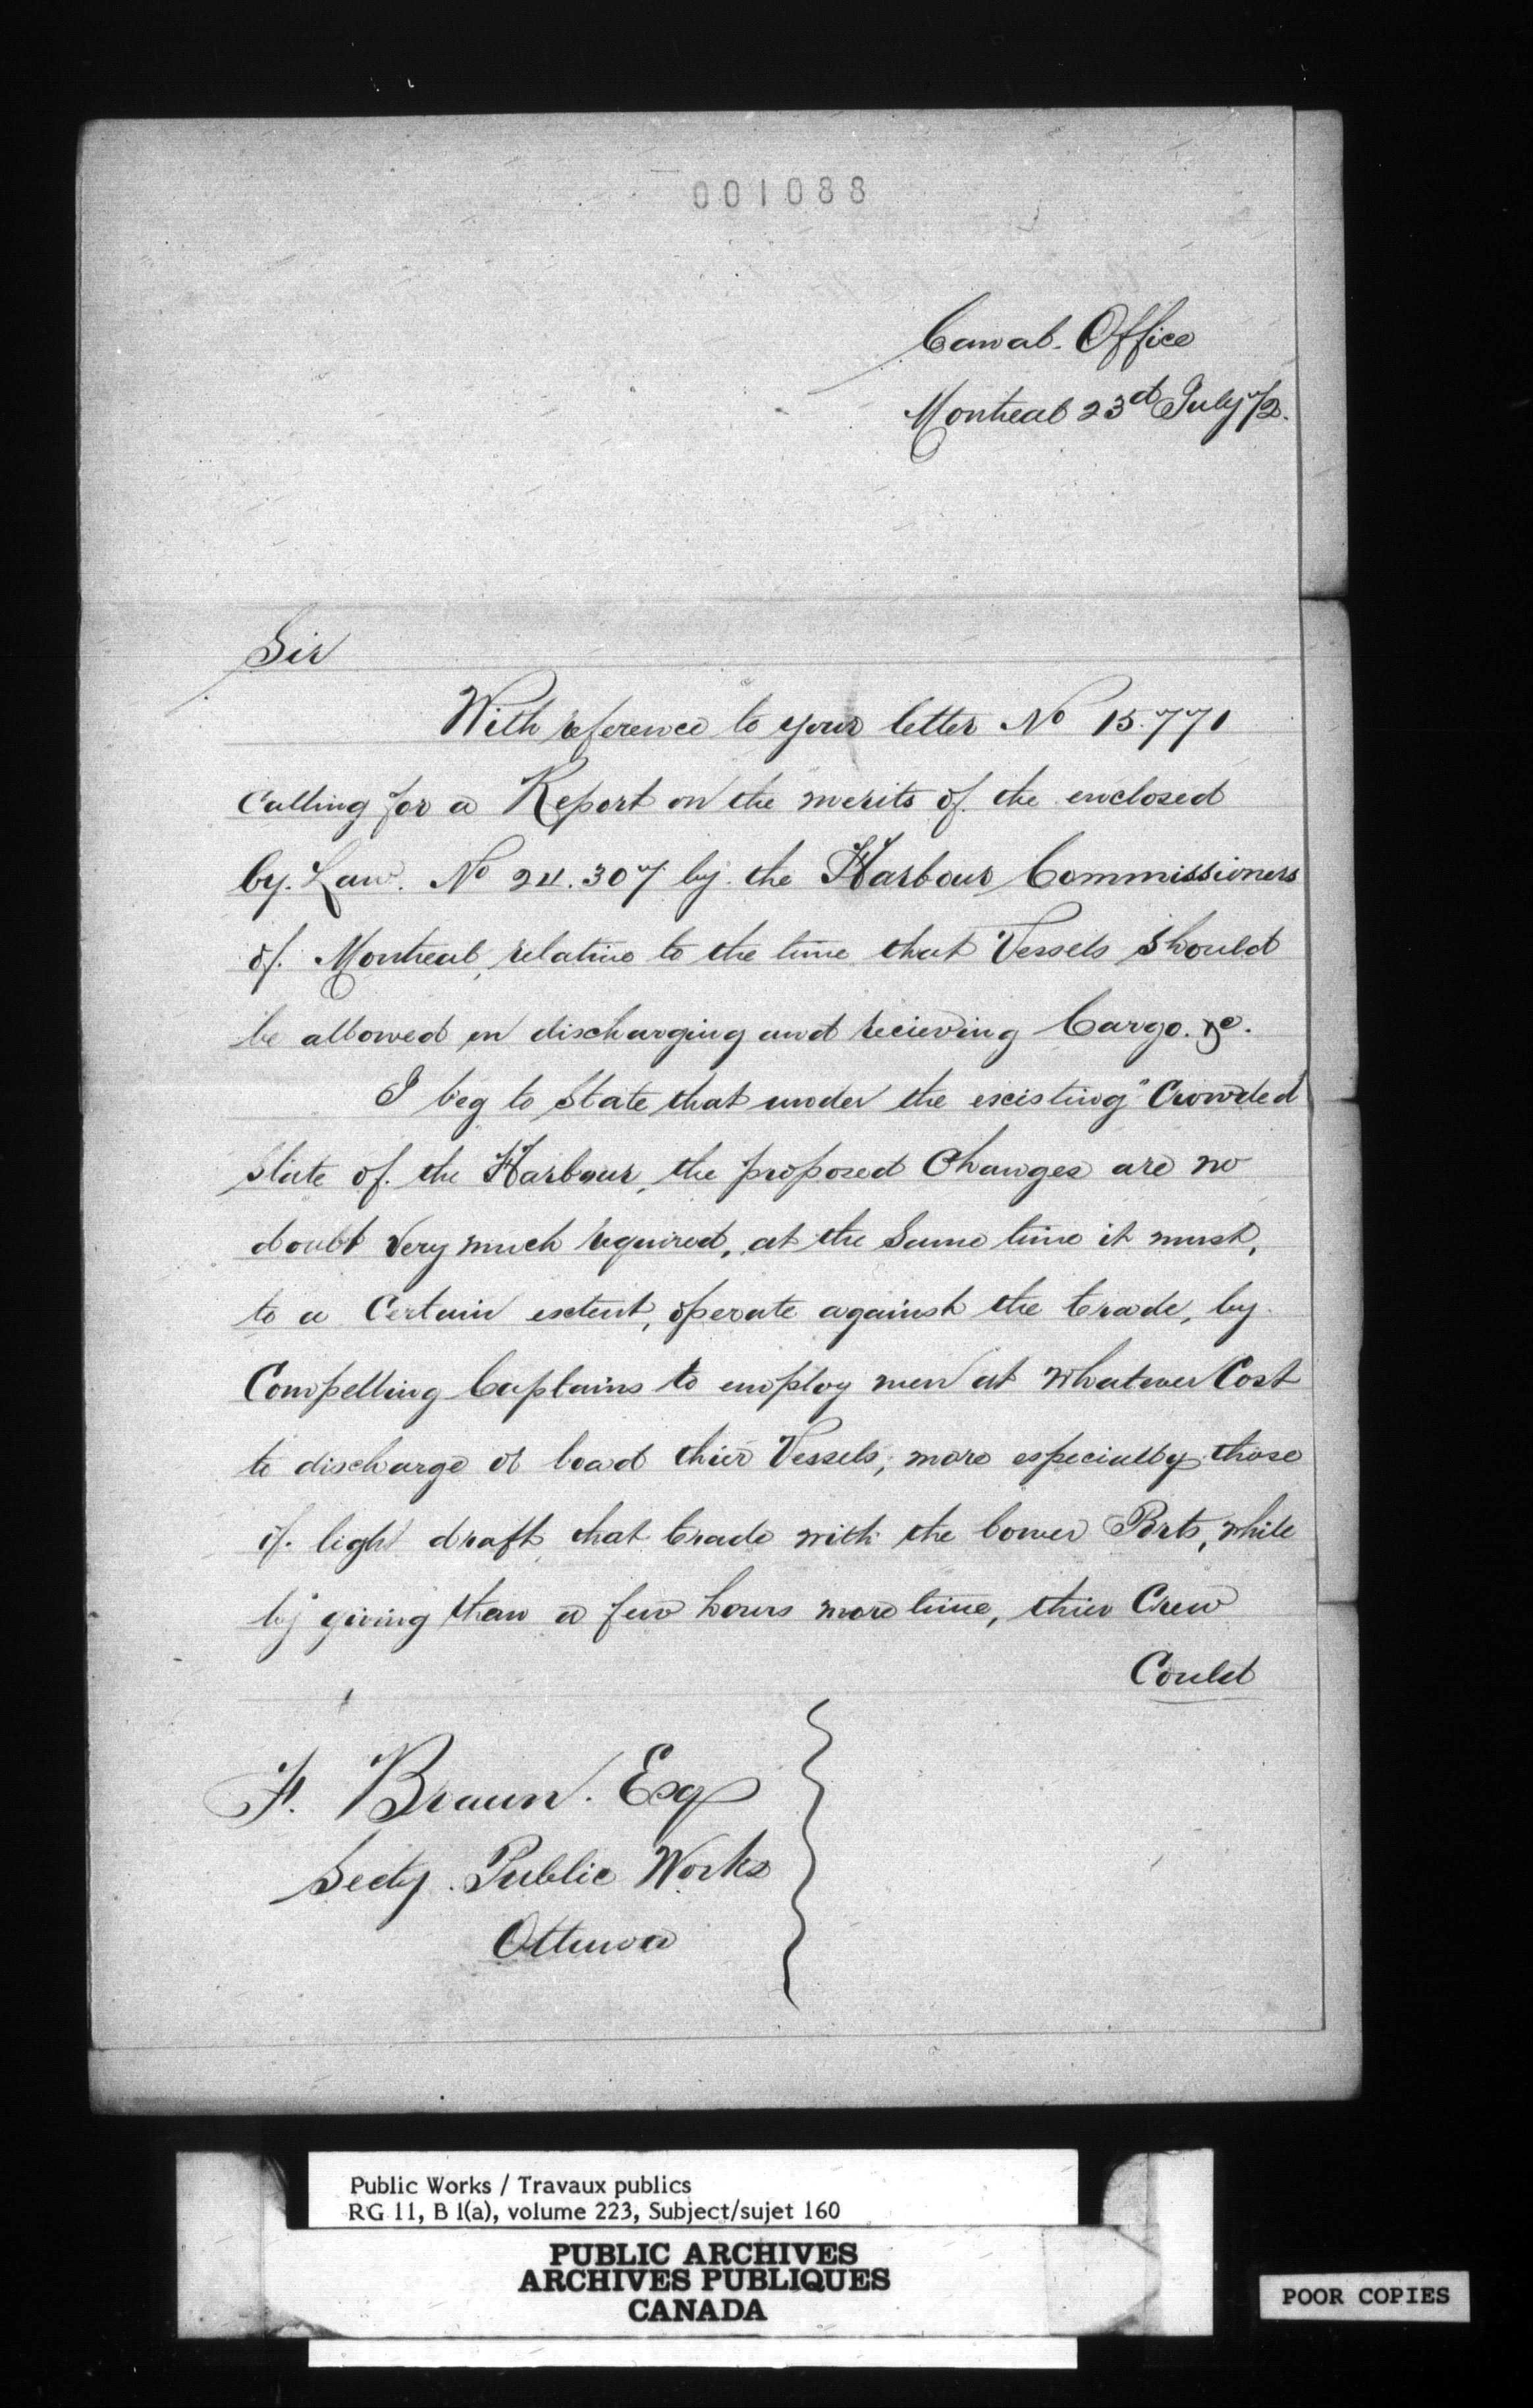 001088
Canal Office
Montreal 23d July /72.
Sir
With reference to your letter No 15.771
Calling for a Report on the merits of the enclosed
by. Law. No 24.307 by the Harbour Commissioners
of Montreal, relative to the time that Vessels Should
be allowed in discharging and recieving Cargo. &c.
I beg to State that under the existing "Crowded
State of the Harbour, the proposed Changes are no
doubt Very much required, at the Same time it must,
to a Certain extent, operate against the trade, by
Compelling Captains to employ men at Whatever Cost
to discharge or load thier Vessels; more especially those
of light draft that trade with the lower Ports, while
by giving them a few hours more time, thier Crew
Could
F. Braun. Esq
Secty. Public Works
Ottawa
Public Works / Travaux publics
RG 11, B 1(a), volume 223, Subject/sujet 160
PUBLIC ARCHIVES
ARCHIVES PUBLIQUES
CANADA
POOR COPIES